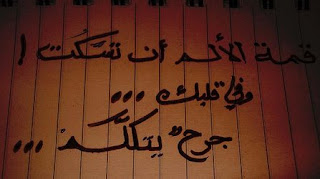 قمة الألم أن تسكت !
وفي قلبك ...
جرح يتكلم ...